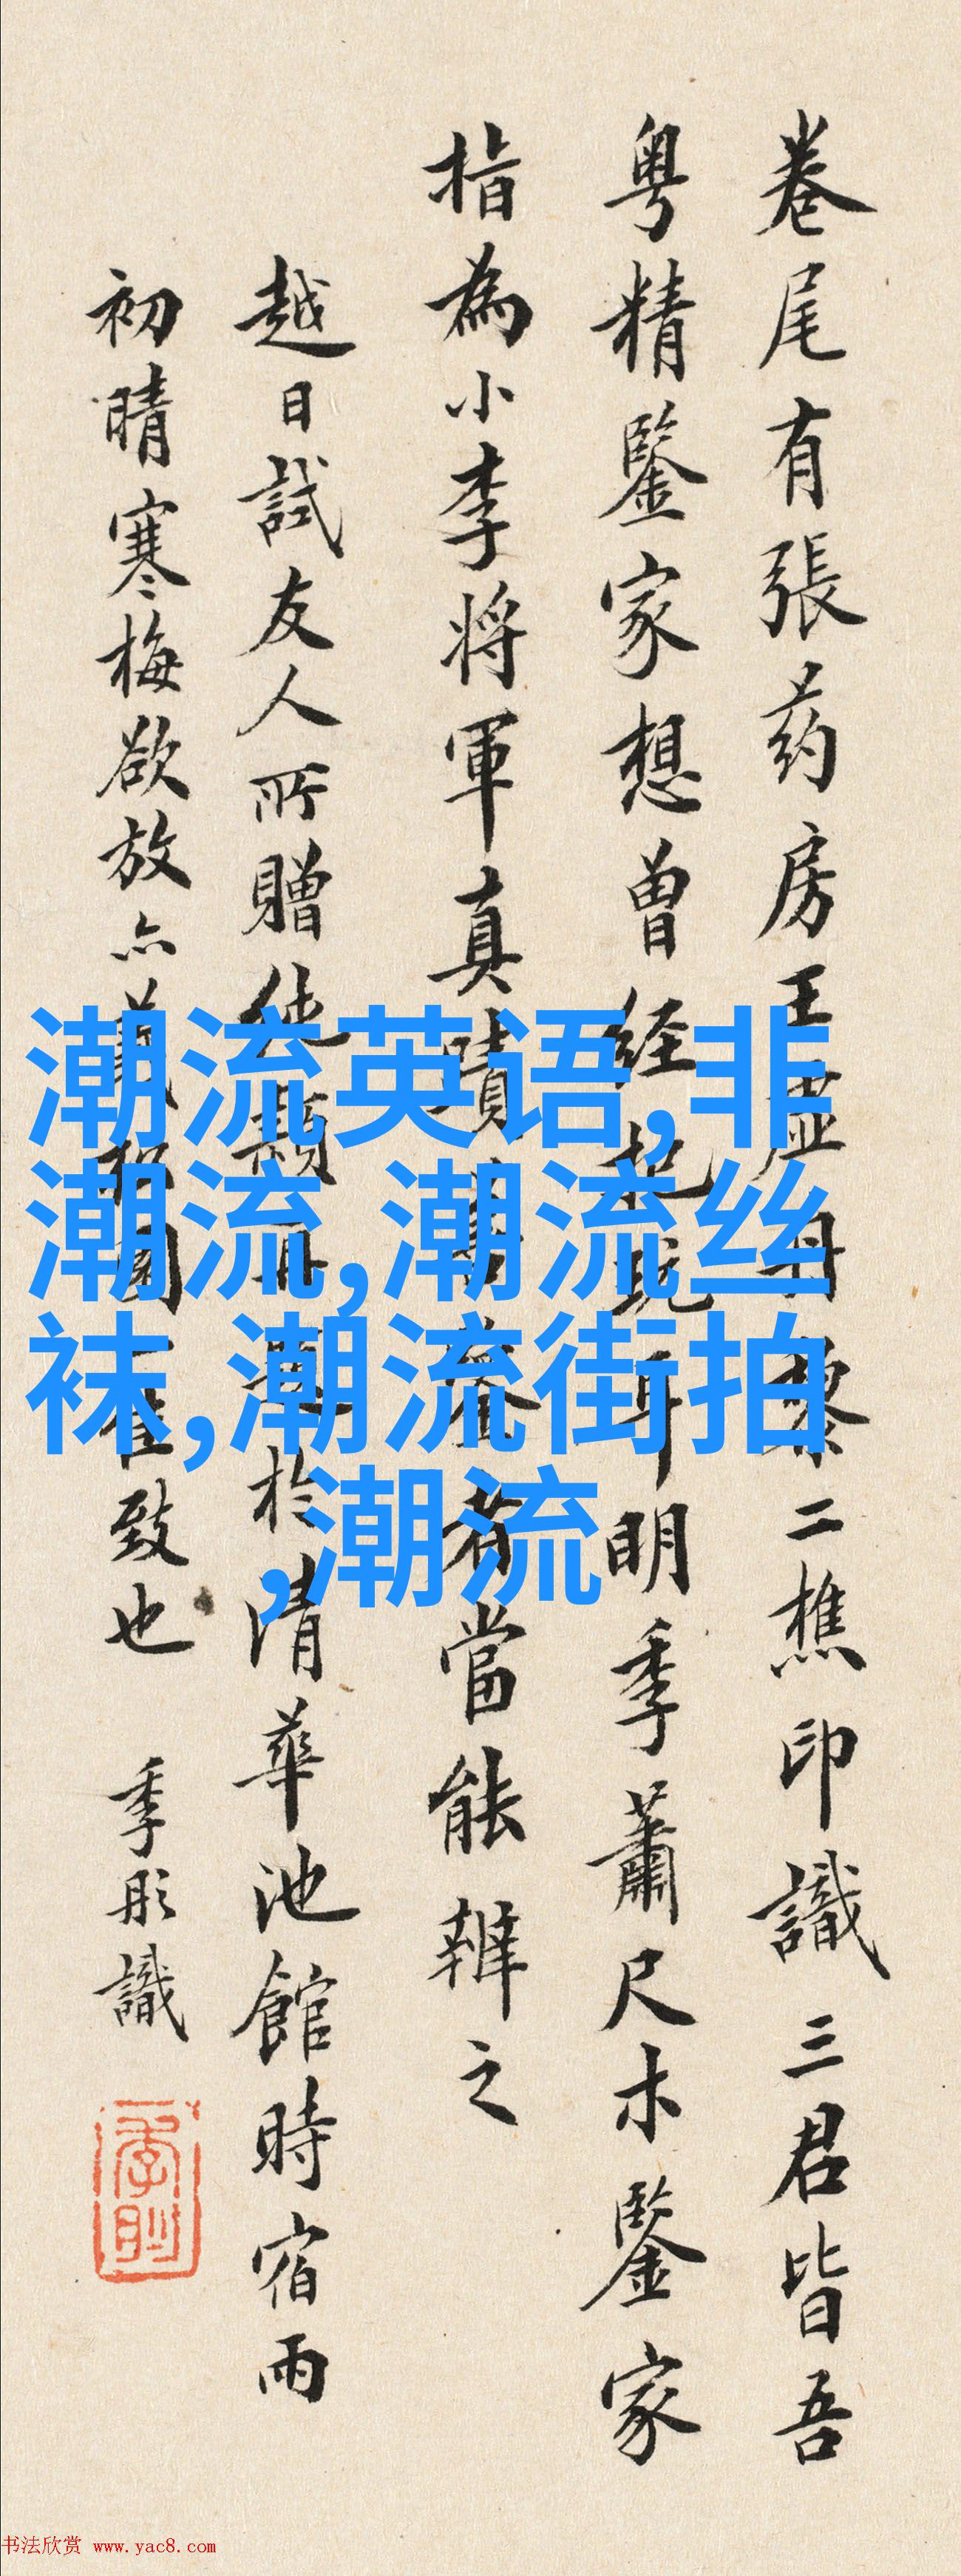 卷尾有張药房王虚舟黎二樵印識三君皆吾
粵精鑒家想曾经把玩耳明季蕭尺木鑒家
指為小李將軍真蹟當能辨之
越日試友人所贈於清華池館時宿雨
初晴寒梅欲放亦致也 季彤識
潮流英语,非
潮流,潮流丝
袜,潮流街拍
,潮流
书法欣赏 www.yac8.com